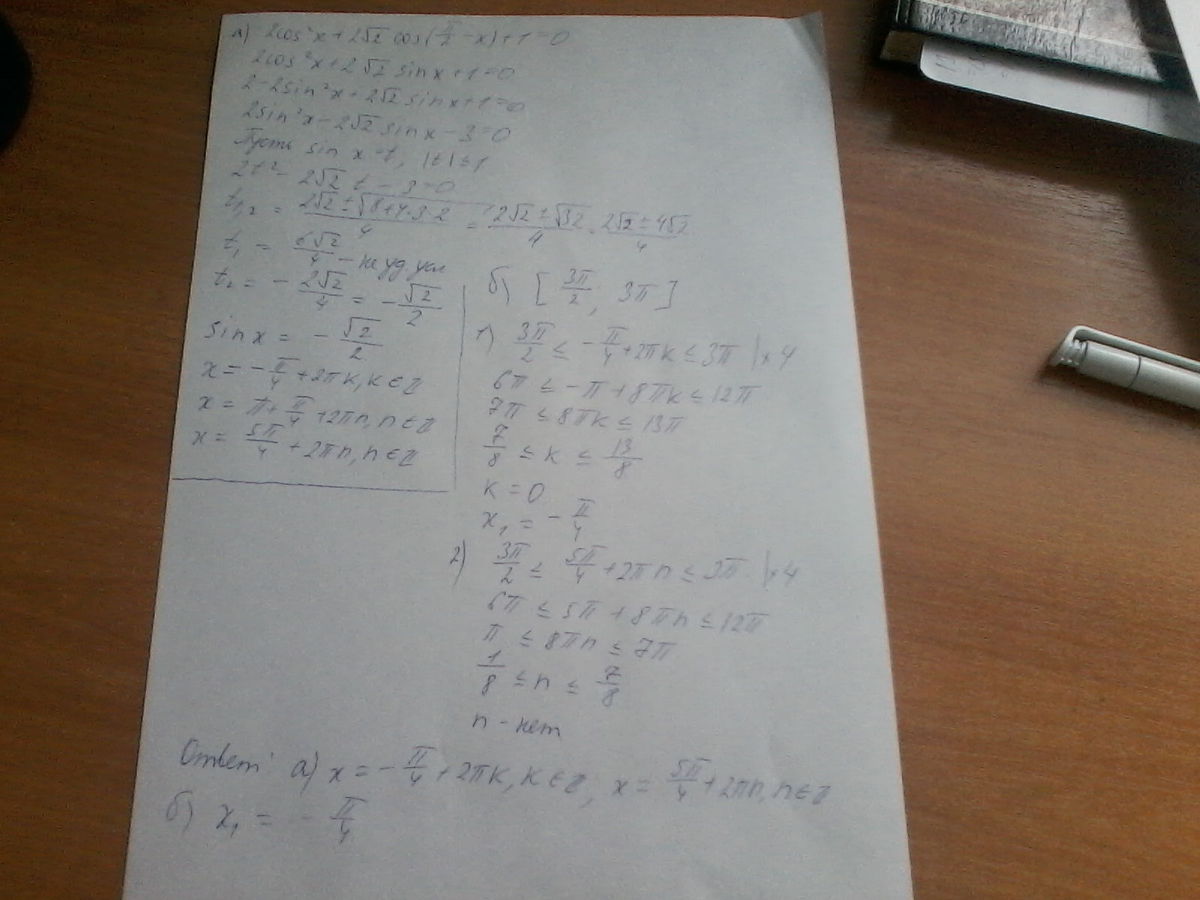 а) 2cos²x + 2√2 cos(π/2 − x) + 1 = 0
2cos²x + 2√2 sinx + 1 = 0
2 − 2sin²x + 2√2 sinx + 1 = 0
2sin²x − 2√2 sinx − 3 = 0
Пусть sin x = t, |t| ≤ 1
2t² − 2√2 t − 3 = 0
t₁,₂ = (2√2 ± √(8+4·3·2))/4 = (2√2 ± √32)/4 = (2√2 ± 4√2)/4
t₁ = 6√2/4 – не уд. усл
t₂ = − 2√2/4 = − √2/2
sinx = − √2/2
x = − π/4 + 2πk, k ∈ Z
x = π + π/4 + 2πn, n ∈ Z
x = 5π/4 + 2πn, n ∈ Z
б) [3π/2; 3π]
1) 3π/2 ≤ − π/4 + 2πk ≤ 3π | × 4
6π ≤ − π + 8πk ≤ 12π
7π ≤ 8πk ≤ 13π
7/8 ≤ k ≤ 13/8
k = 0
x₁ = − π/4
2) 3π/2 ≤ 5π/4 + 2πn ≤ 3π | × 4
6π ≤ 5π + 8πn ≤ 12π
π ≤ 8πn ≤ 7π
1/8 ≤ n ≤ 7/8
n – нет
Ответ: а) x = − π/4 + 2πk, k ∈ Z; x = 5π/4 + 2πn, n ∈ Z
б) x₁ = − π/4